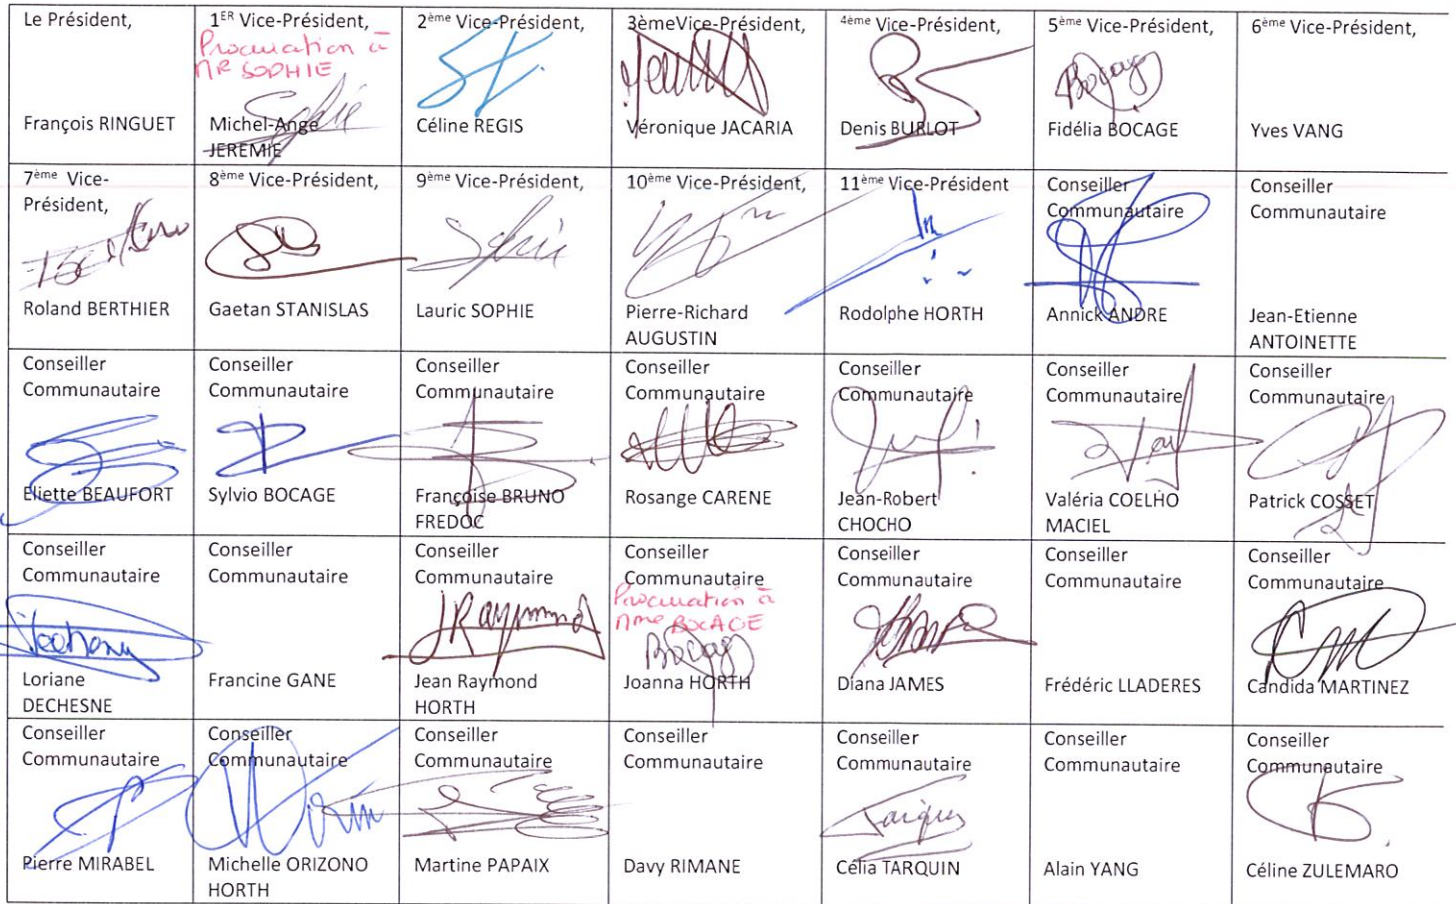 Le Président,
François RINGUET
1ER Vice-Président,
Procuration à
MR SOPHIE
Sophie
Michel-Ange
JEREMIE
2ème Vice-Président,
Céline REGIS
3èmeVice-Président,
Véronique JACARIA
4ème Vice-Président,
Denis BURLOT
5ème Vice-Président,
Bocage
Fidélia BOCAGE
6ème Vice-Président,
Yves VANG
7ème Vice-
Président,
Roland BERTHIER
8ème Vice-Président,
Gaetan STANISLAS
9ème Vice-Président,
Sophie
Lauric SOPHIE
10ème Vice-Président,
Pierre-Richard
AUGUSTIN
11ème Vice-Président
Rodolphe HORTH
Conseiller
Communautaire
Annick ANDRE
Conseiller
Communautaire
Jean-Etienne
ANTOINETTE
Conseiller
Communautaire
Eliette BEAUFORT
Conseiller
Communautaire
Sylvio BOCAGE
Conseiller
Communautaire
Françoise BRUNO
FREDOC
Conseiller
Communautaire
Rosange CARENE
Conseiller
Communautaire
Jean-Robert
CHOCHO
Conseiller
Communautaire
Valéria COELHO
MACIEL
Conseiller
Communautaire
Patrick COSSET
Conseiller
Communautaire
Loriane
DECHESNE
Conseiller
Communautaire
Francine GANE
Conseiller
Communautaire
JRaymond
Jean Raymond
HORTH
Conseiller
Communautaire
Procuration à
Mme BOCAGE
Bocage
Joanna HORTH
Conseiller
Communautaire
Diana JAMES
Conseiller
Communautaire
Frédéric LLADERES
Conseiller
Communautaire
Candida MARTINEZ
Conseiller
Communautaire
Pierre MIRABEL
Conseiller
Communautaire
Michelle ORIZONO
HORTH
Conseiller
Communautaire
Martine PAPAIX
Conseiller
Communautaire
Davy RIMANE
Conseiller
Communautaire
Tarquin
Célia TARQUIN
Conseiller
Communautaire
Alain YANG
Conseiller
Communautaire
Céline ZULEMARO